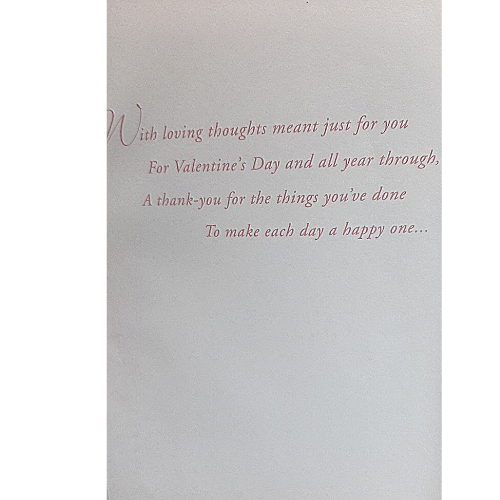 With loving thoughts meant just for you
For Valentine's Day and all year through,
A thank-you for the things you've done
To make each day a happy one...